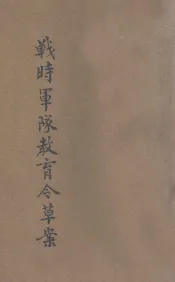 戰時軍隊教育令草案